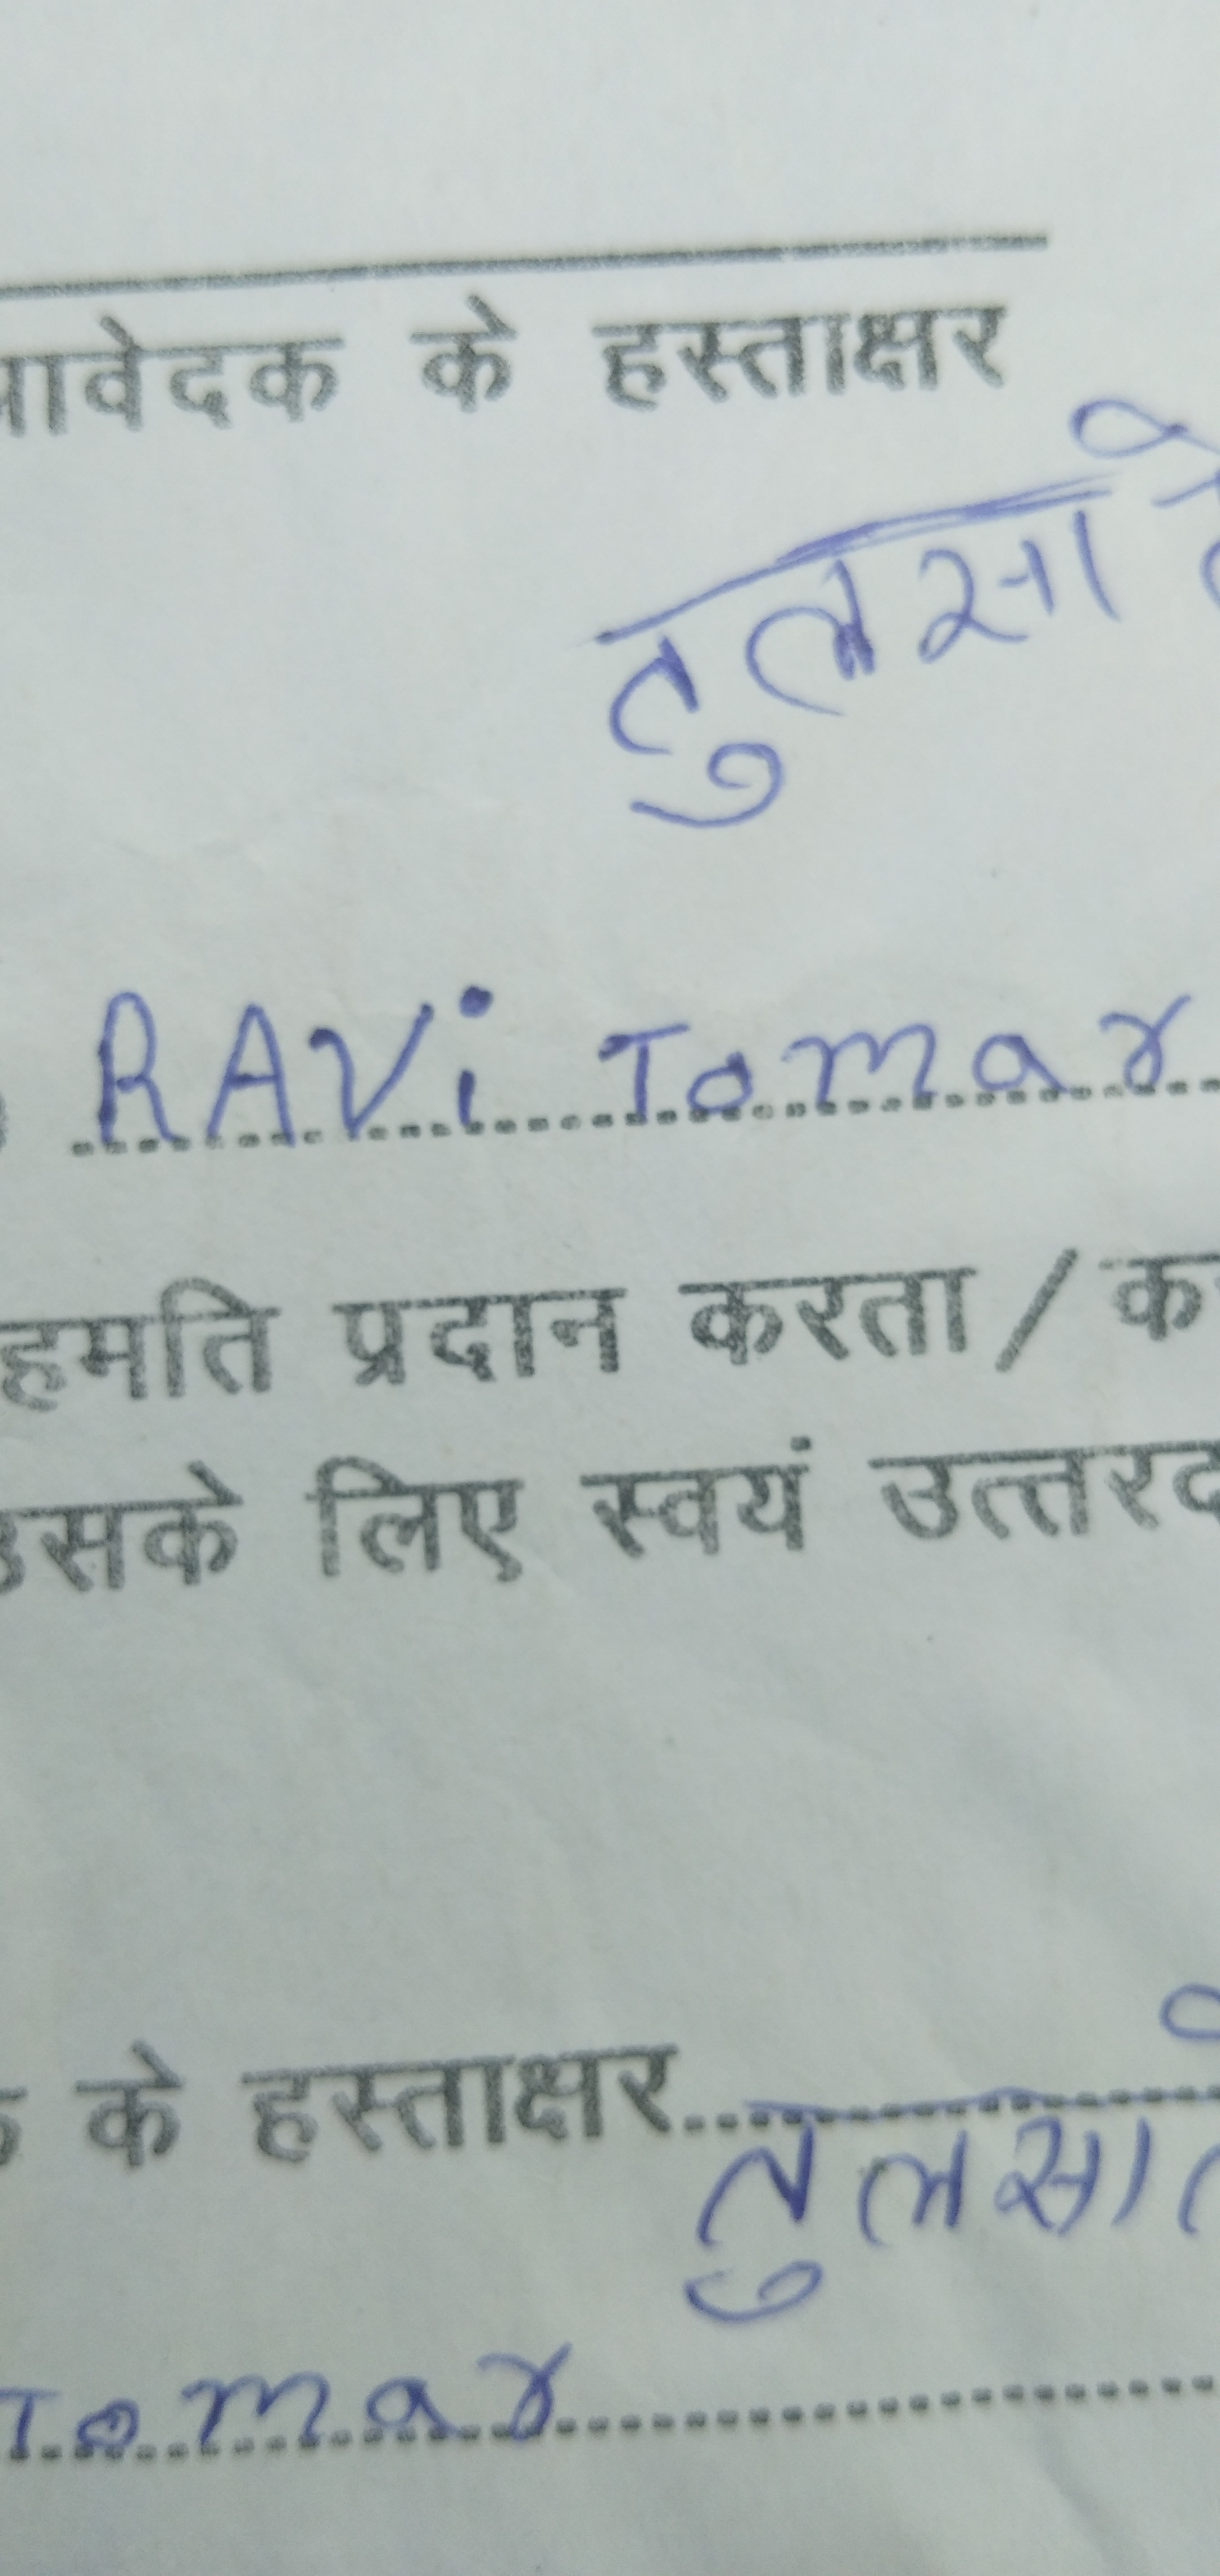 आवेदक के हस्ताक्षर
तुलसा
RAVi Tomar
सहमति प्रदान करता /
उसके लिए स्वयं
के हस्ताक्षर........ तुलसा
Tomar